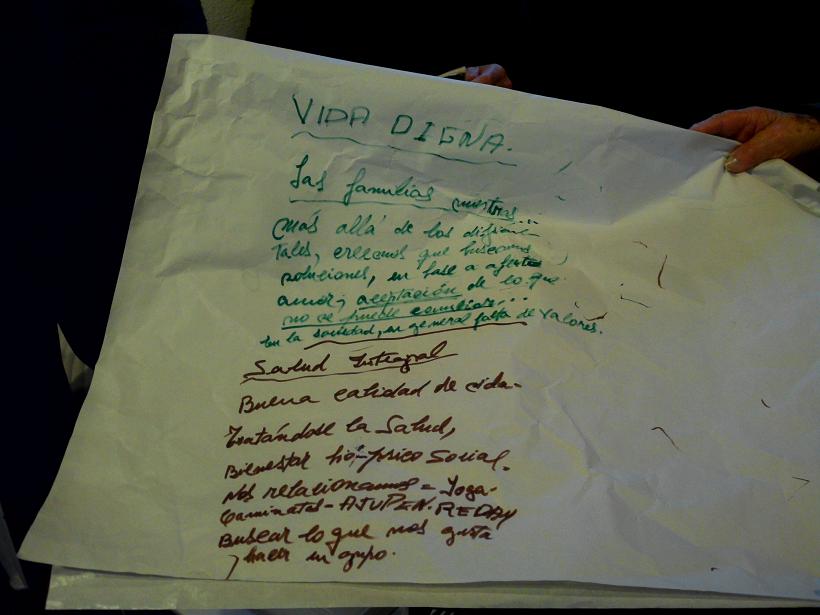 VIDA DIGNA.
Las familias nuestras...
más allá de los
tales, creemos que buscamos
soluciones, en base a afecto
amor; aceptación de lo que
no se puede cambiar...
En la sociedad, en general falta de valores.
Salud Integral
Buena calidad de vida-
Tratándose la Salud,
Bienestar bio-psico Social.
Nos relacionamos = Yoga-
Caminatas - AJUPEN. REDAM
Buscar lo que nos gusta
y hacer en grupo.